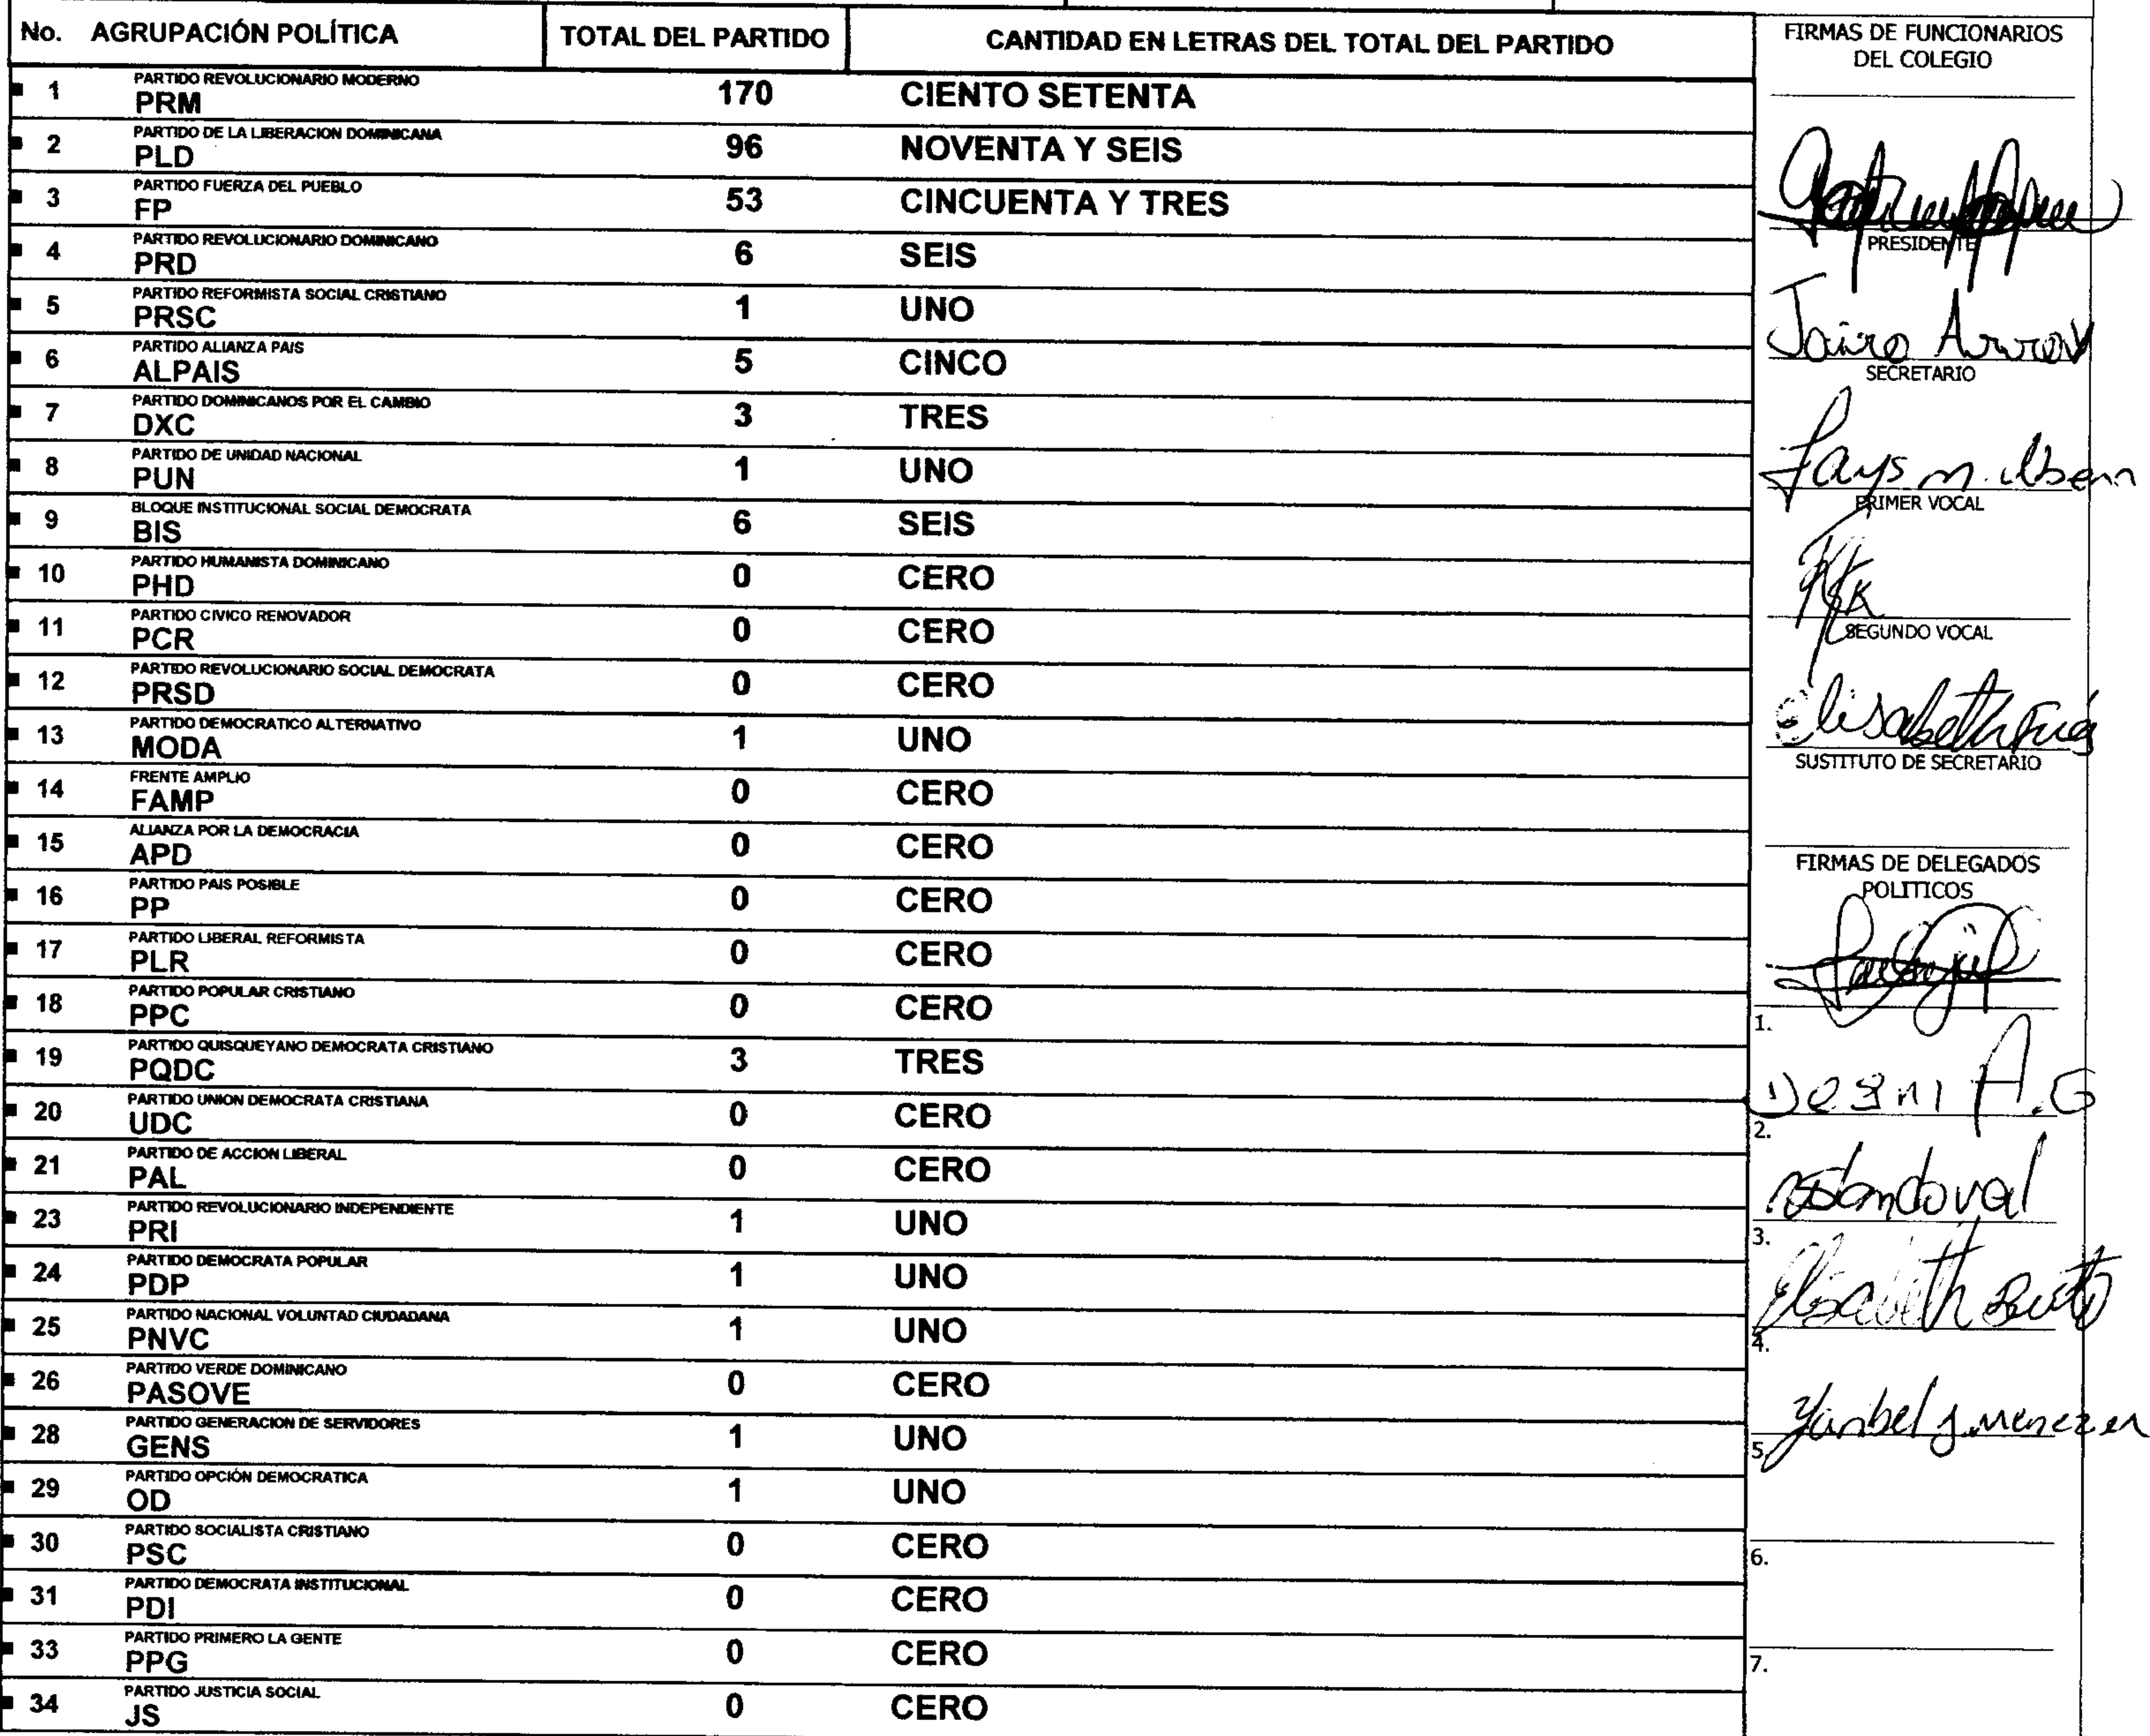 No. AGRUPACIÓN POLÍTICA TOTAL DEL PARTIDO CANTIDAD EN LETRAS DEL TOTAL DEL PARTIDO
1 PARTIDO REVOLUCIONARIO MODERNO
PRM 170 CIENTO SETENTA
2 PARTIDO DE LA LIBERACION DOMINICANA
PLD 96 NOVENTA Y SEIS
3 PARTIDO FUERZA DEL PUEBLO
FP 53 CINCUENTA Y TRES
4 PARTIDO REVOLUCIONARIO DOMINICANO
PRD 6 SEIS
5 PARTIDO REFORMISTA SOCIAL CRISTIANO
PRSC 1 UNO
6 PARTIDO ALIANZA PAIS
ALPAIS 5 CINCO
7 PARTIDO DOMINICANOS POR EL CAMBIO
DXC 3 TRES
8 PARTIDO DE UNIDAD NACIONAL
PUN 1 UNO
9 BLOQUE INSTITUCIONAL SOCIAL DEMOCRATA
BIS 6 SEIS
10 PARTIDO HUMANISTA DOMINICANO
PHD 0 CERO
11 PARTIDO CIVICO RENOVADOR
PCR 0 CERO
12 PARTIDO REVOLUCIONARIO SOCIAL DEMOCRATA
PRSD 0 CERO
13 PARTIDO DEMOCRATICO ALTERNATIVO
MODA 1 UNO
14 FRENTE AMPLIO
FAMP 0 CERO
15 ALIANZA POR LA DEMOCRACIA
APD 0 CERO
16 PARTIDO PAIS POSIBLE
PP 0 CERO
17 PARTIDO LIBERAL REFORMISTA
PLR 0 CERO
18 PARTIDO POPULAR CRISTIANO
PPC 0 CERO
19 PARTIDO QUISQUEYANO DEMOCRATA CRISTIANO
PQDC 3 TRES
20 PARTIDO UNION DEMOCRATA CRISTIANA
UDC 0 CERO
21 PARTIDO DE ACCION LIBERAL
PAL 0 CERO
23 PARTIDO REVOLUCIONARIO INDEPENDIENTE
PRI 1 UNO
24 PARTIDO DEMOCRATA POPULAR
PDP 1 UNO
25 PARTIDO NACIONAL VOLUNTAD CIUDADANA
PNVC 1 UNO
26 PARTIDO VERDE DOMINICANO
PASOVE 0 CERO
28 PARTIDO GENERACION DE SERVIDORES
GENS 1 UNO
29 PARTIDO OPCIÓN DEMOCRATICA
OD 1 UNO
30 PARTIDO SOCIALISTA CRISTIANO
PSC 0 CERO
31 PARTIDO DEMOCRATA INSTITUCIONAL
PDI 0 CERO
33 PARTIDO PRIMERO LA GENTE
PPG 0 CERO
34 PARTIDO JUSTICIA SOCIAL
JS 0 CERO
FIRMAS DE FUNCIONARIOS
DEL COLEGIO
PRESIDENTE
Jairo
SECRETARIO
PRIMER VOCAL
SEGUNDO VOCAL
Elisabeth
SUSTITUTO DE SECRETARIO
FIRMAS DE DELEGADOS
POLITICOS
1.
A.G
2.
Sandoval
3.
Elisabeth
4.
5.
6.
7.